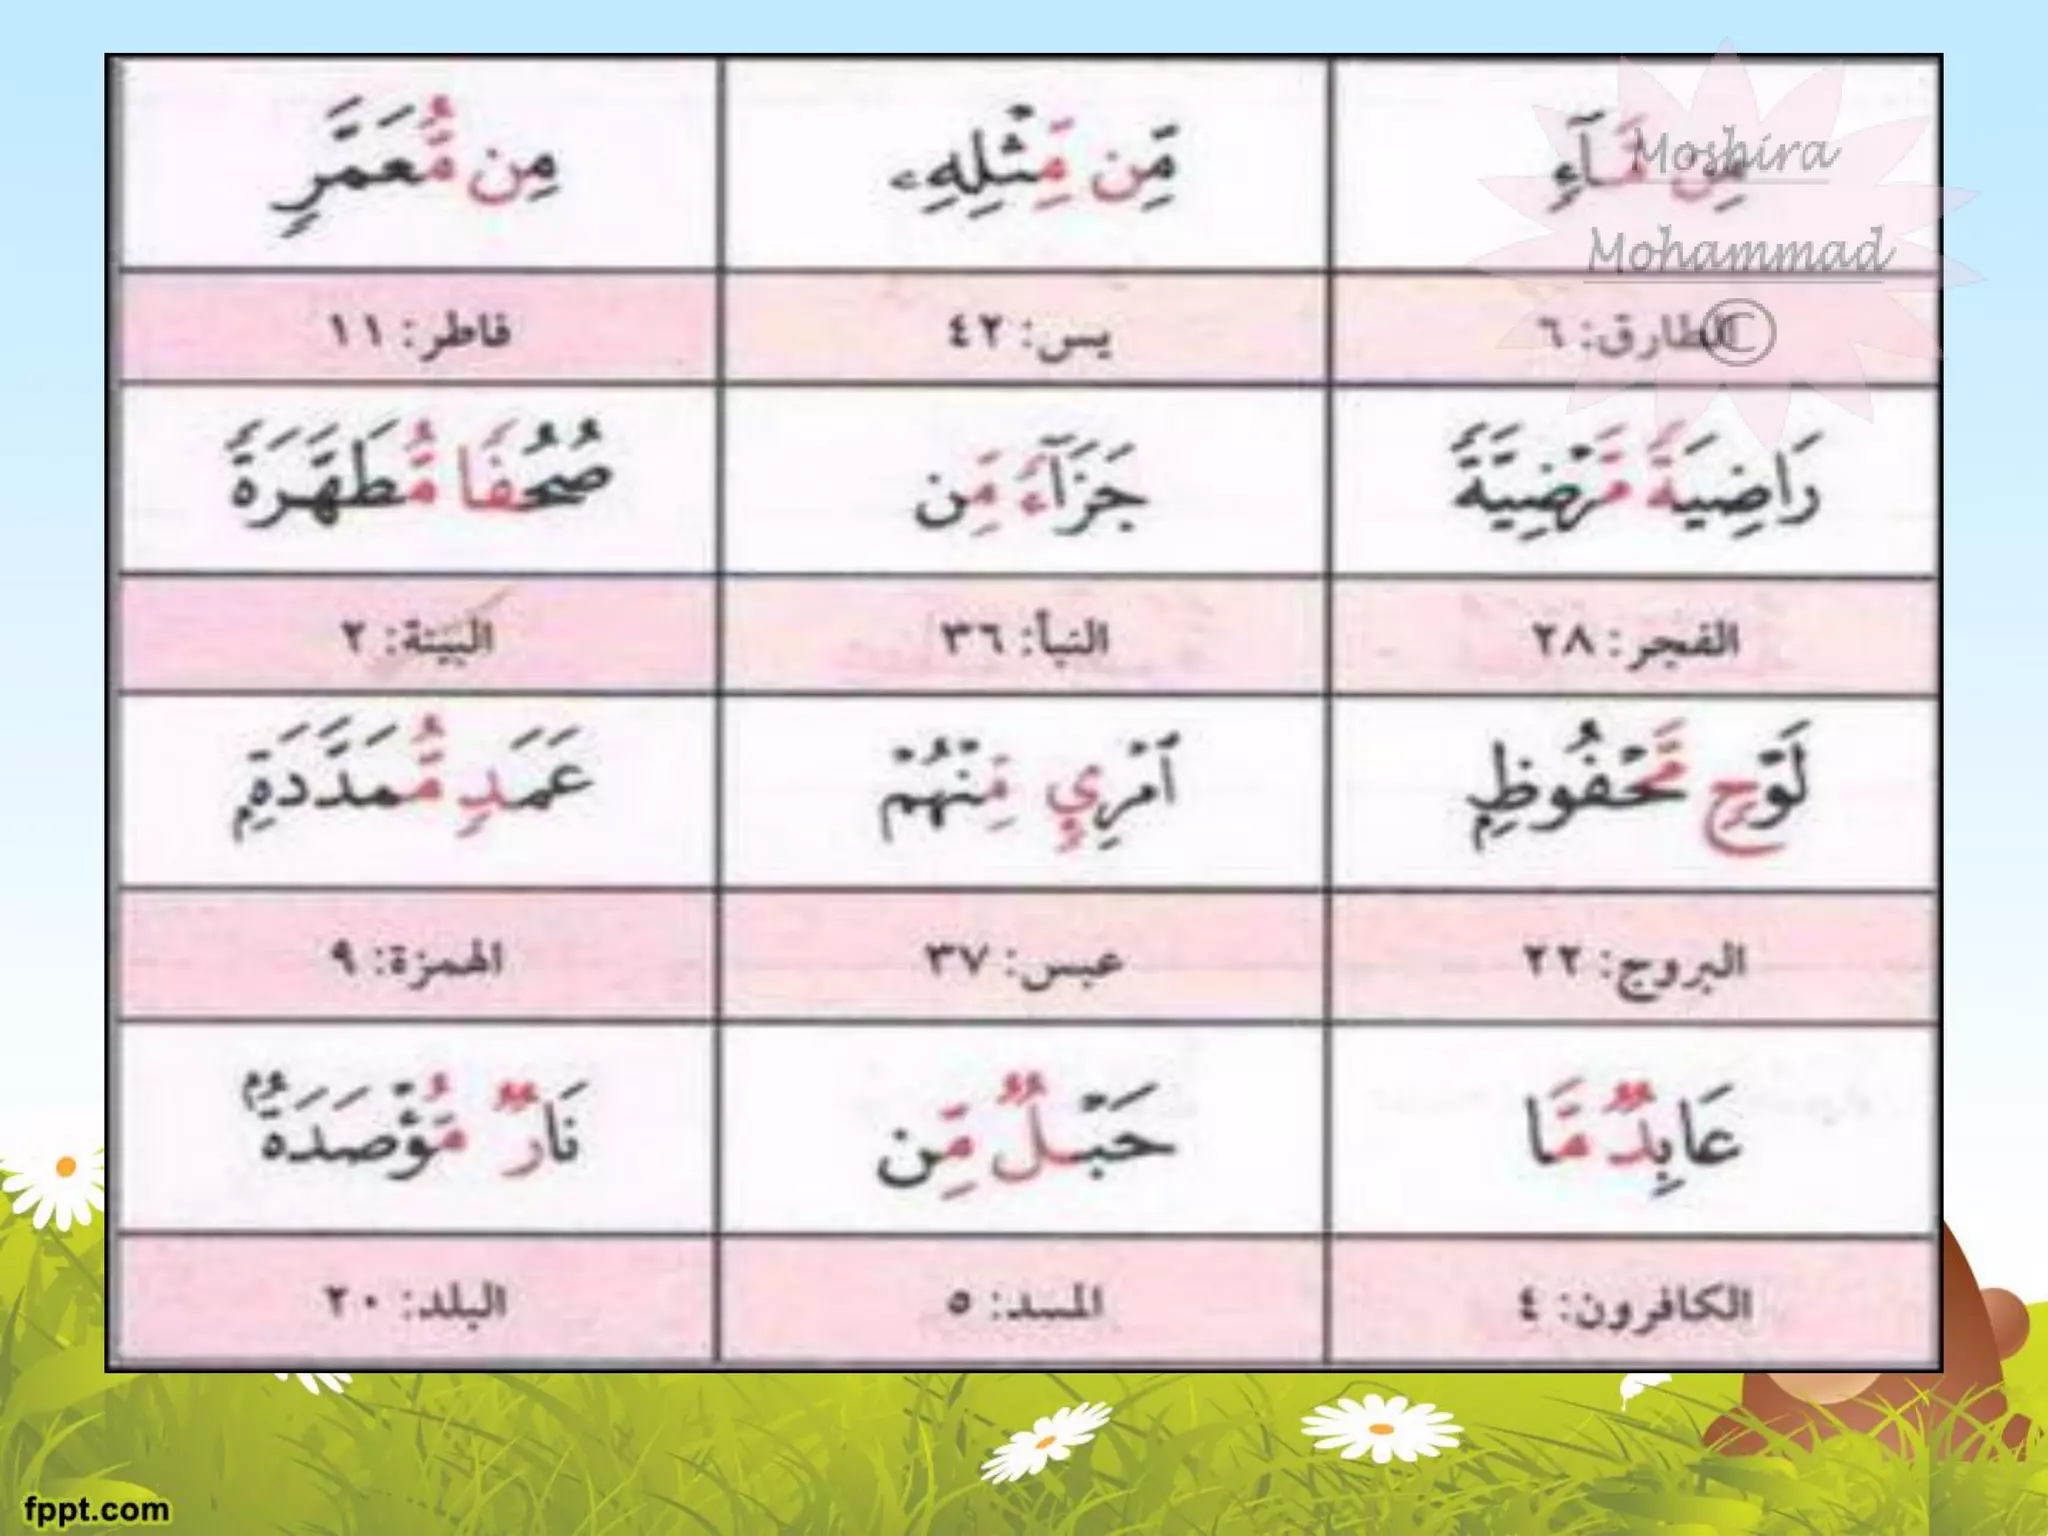 مِن مَّآءٍ
مِّن مِّثۡلِهِۦ
مِن مُّعَمَّرٍ
الطارق: ٦
يس: ٤٢
فاطر: ١١
رَاضِيَةً مَّرۡضِيَّةً
جَزَآءً مِّن
صُحُفًا مُّطَهَّرَةً
الفجر: ٢٨
النبأ: ٣٦
البينة: ٢
لَوۡحٍ مَّحۡفُوظِۭ
ٱمۡرِيٍٕ مِّنۡهُمۡ
عَمَدٍ مُّمَدَّدَةِۭ
البروج: ٢٢
عبس: ٣٧
الهمزة: ٩
عَابِدٌ مَّا
حَبۡلٌ مِّن
نَارٌ مُّؤۡصَدَةُۢ
الكافرون: ٤
المسد: ٥
البلد: ٢٠
Moshira
Mohammad
©
fppt.com